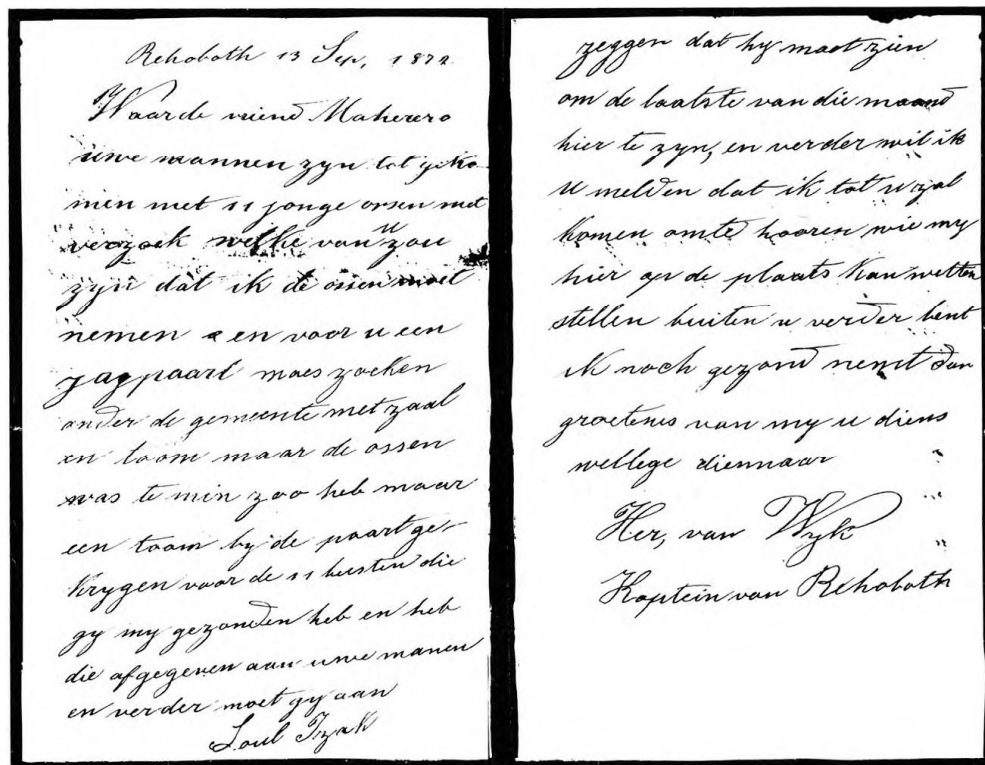 Rehoboth 13 Sep, 1872
Waarde vriend Maherero
uwe mannen zyn tot geko-
men met 11 jonge orsen met
verzoek welke van u zou
zyn dat ik de ossen moet
nemen en voor u een
jagpaart moes zoeken
onder de gemeente met zaal
en toom maar de ossen
was te min zoo heb maar
een toom by de paart ge-
krygen voor de 11 beesten die
gy my gezonden heb en heb
die afgegeven aan uwe manen
en verder moet gy aan
Soul Izak
zeggen dat hy moet zien
om de laatste van die maand
hier te zyn, en verder wil ik
u melden dat ik tot u zal
komen omte hooren wie my
hier op de plaats kan wetten
stellen buiten u verder bent
ik noch gezond nemt dan
groetenis van my u diens
wellege diennaar
Her, van Wyk
Kaptein van Rehoboth